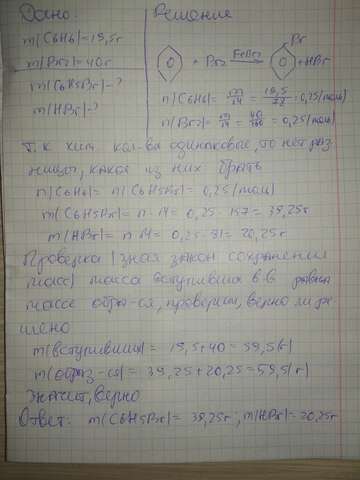 Дано: Решение
m(C6H6)=19,5г
m(Br2)=40г
m(C6H5Br)-?
m(HBr)-?
+ Br2 FeBr3 Br +HBr
n(C6H6)= m/M = 19,5/78 = 0,25(моль)
n(Br2)= m/M = 40/160 = 0,25(моль)
Т.к хим. кол-ва одинаковые, то нет раз
ницы, какое из них брать
n(C6H6)= n(C6H5Br)= 0,25(моль)
m(C6H5Br)= n·M= 0,25·157= 39,25г
m(HBr)= n·M= 0,25·81= 20,25г
Проверка (зная закон сохранения
масс) масса вступивших в-в равна
массе образ-ся, проверим, верно ли ре
шено
m(вступивших)= 19,5+40= 59,5(г)
m(образ-ся)= 39,25+20,25=59,5(г)
Значит, верно
Ответ: m(C6H5Br)= 39,25г; m(HBr)=20,25г